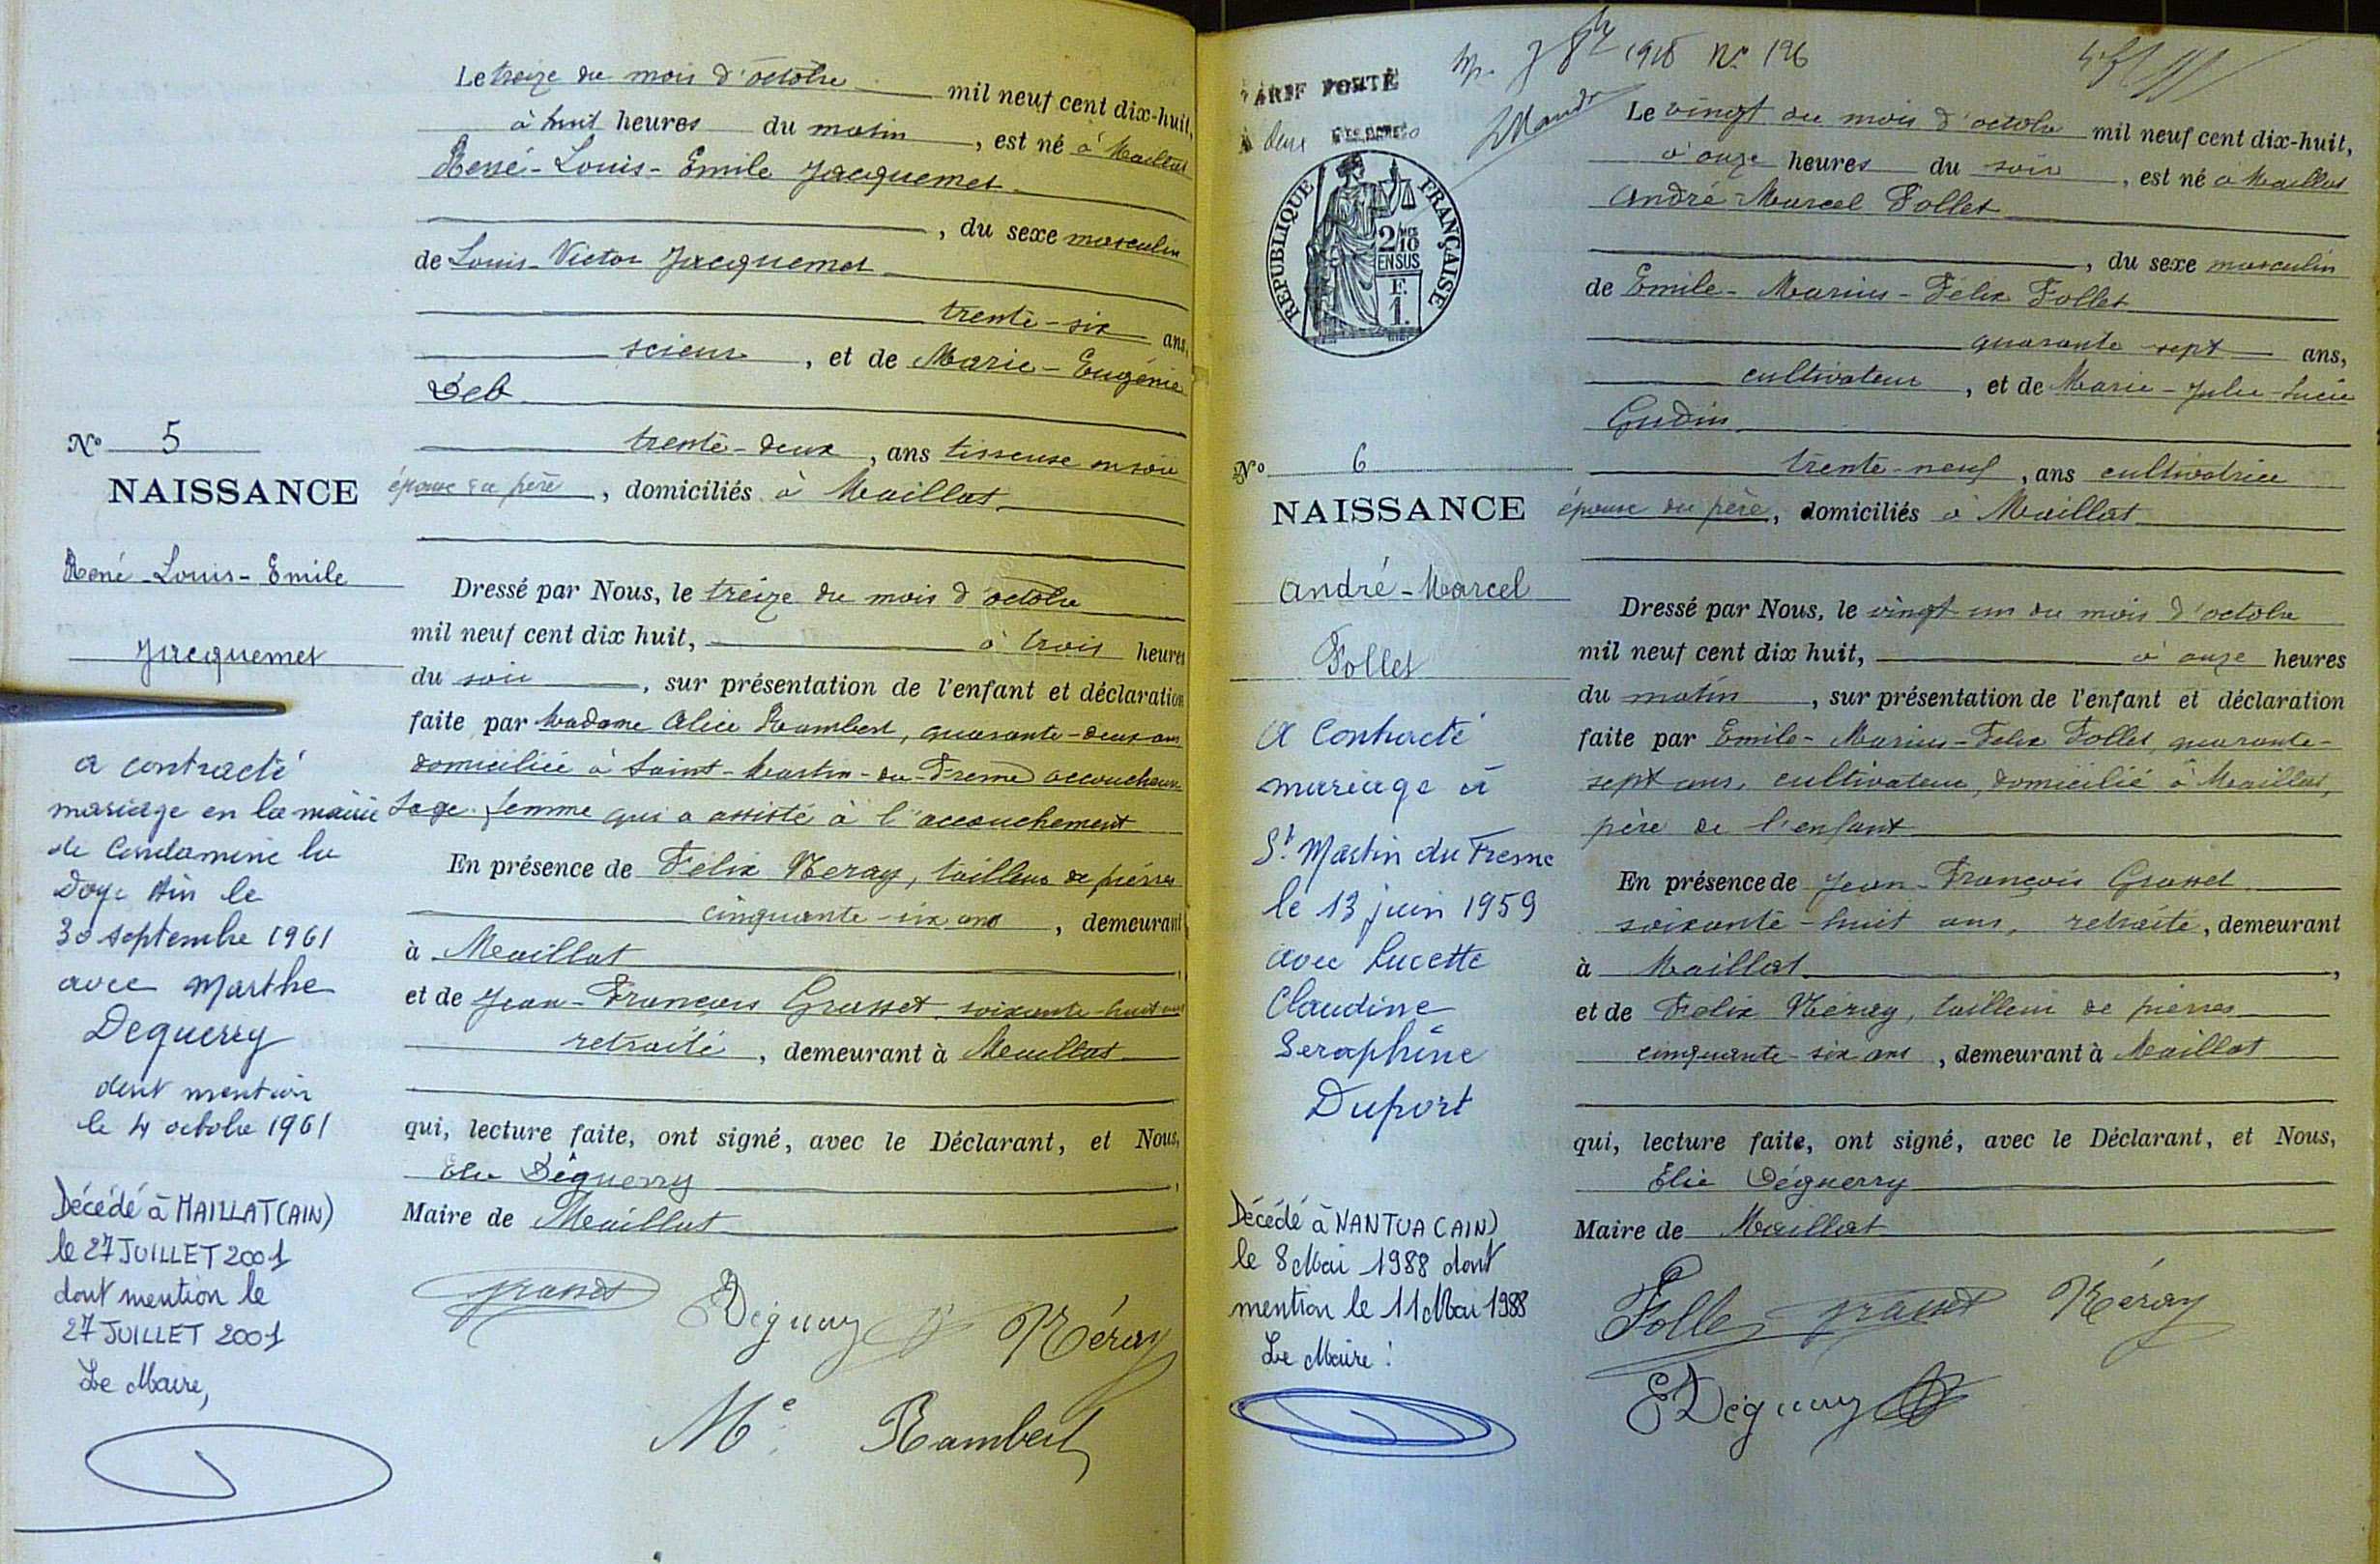 Le treize du mois d'octobre mil neuf cent dix-huit,
à huit heures du matin, est né à Maillat
René-Louis-Emile Jacquemet
, du sexe masculin
de Louis-Victor Jacquemet
trente-six ans,
scieur, et de Marie-Eugénie
Deb
trente-deux, ans tisseuse en soie
épouse du père, domiciliés à Maillat
N° 5
NAISSANCE
René-Louis-Emile
Jacquemet
Dressé par Nous, le treize du mois d'octobre
mil neuf cent dix huit, à trois heures
du soir, sur présentation de l'enfant et déclaration
faite par Madame Alice Rambert, quarante-deux ans
domiciliée à Saint-Martin-du-Fresne accoucheuse
sage-femme qui a assisté à l'accouchement
En présence de Félix Néray, tailleur de pierres
cinquante-six ans, demeurant
à Maillat,
et de Jean-François Grasset, soixante-huit ans
retraité, demeurant à Maillat
qui, lecture faite, ont signé, avec le Déclarant, et Nous,
Elie Déguerry,
Maire de Maillat
Grasset EDéguerry Néray
Me Rambert
a contracté
mariage en la mairie
de Condamine la
Doye Ain le
30 septembre 1961
avec Marthe
Deguerry
dont mention
le 4 octobre 1961
Décédé à MAILLAT (AIN)
le 27 JUILLET 2001
dont mention le
27 JUILLET 2001
Le Maire,
TARIF PORTÉ
À deux
1918 N° 196
RÉPUBLIQUE FRANÇAISE
2/10
EN SUS
F.
1.
Le vingt du mois d'octobre mil neuf cent dix-huit,
à onze heures du soir, est né à Maillat
André-Marcel Follet
, du sexe masculin
de Emile-Marius-Félix Follet
quarante-sept ans,
cultivateur, et de Marie-Julie-Lucie
Gudin
trente-neuf, ans cultivatrice
épouse du père, domiciliés à Maillat
N° 6
NAISSANCE
André-Marcel
Follet
Dressé par Nous, le vingt un du mois d'octobre
mil neuf cent dix huit, à onze heures
du matin, sur présentation de l'enfant et déclaration
faite par Emile-Marius-Félix Follet, quarante-
sept ans, cultivateur, domicilié à Maillat,
père de l'enfant
En présence de Jean-François Grasset
soixante-huit ans, retraité, demeurant
à Maillat,
et de Félix Néray, tailleur de pierres
cinquante-six ans, demeurant à Maillat
qui, lecture faite, ont signé, avec le Déclarant, et Nous,
Elie Déguerry
Maire de Maillat
Follet Grasset Néray
EDéguerry
A contracté
mariage à
St Martin du Fresne
le 13 juin 1959
avec Lucette
Claudine
Seraphine
Duport
Décédé à NANTUA (AIN)
le 8 Mai 1988 dont
mention le 11 Mai 1988
Le Maire :